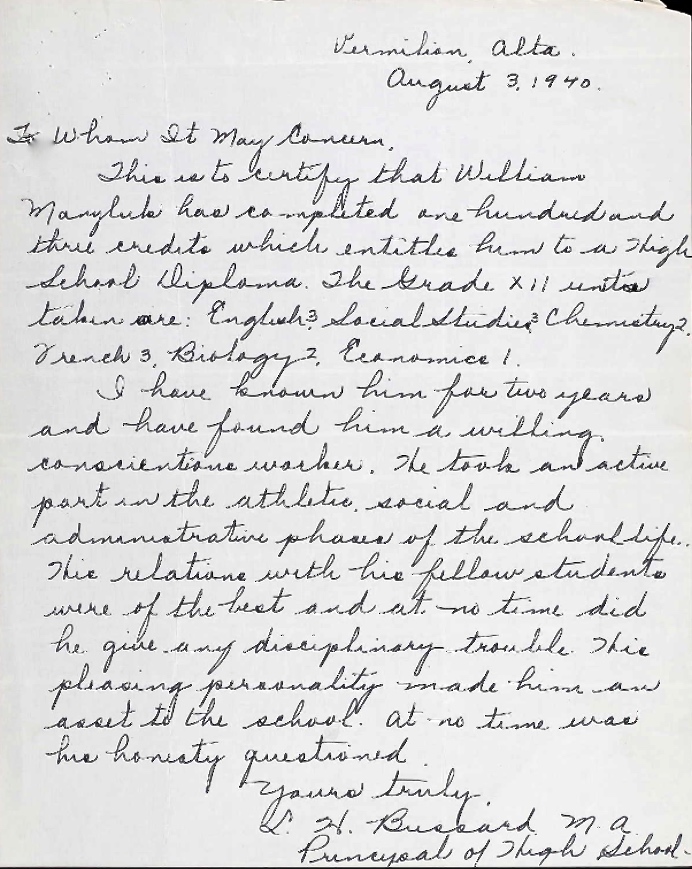 Vermilion, Alta.
August 3, 1940.
To Whom It May Concern,
This is to certify that William
Manyluk has completed one hundred and
three credits which entitles him to a High
School Diploma. The Grade XII units
taken are: English 3, Social Studies 3, Chemistry 2,
French 3, Biology 2, Economics 1.
I have known him for two years
and have found him a willing,
conscientious worker. He took an active
part in the athletic, social and
administrative phases of the school life.
His relations with his fellow students
were of the best and at no time did
he give any disciplinary trouble. His
pleasing personality made him an
asset to the school. At no time was
his honesty questioned.
Yours truly,
L. H. Bussard M.A.
Principal of High School.